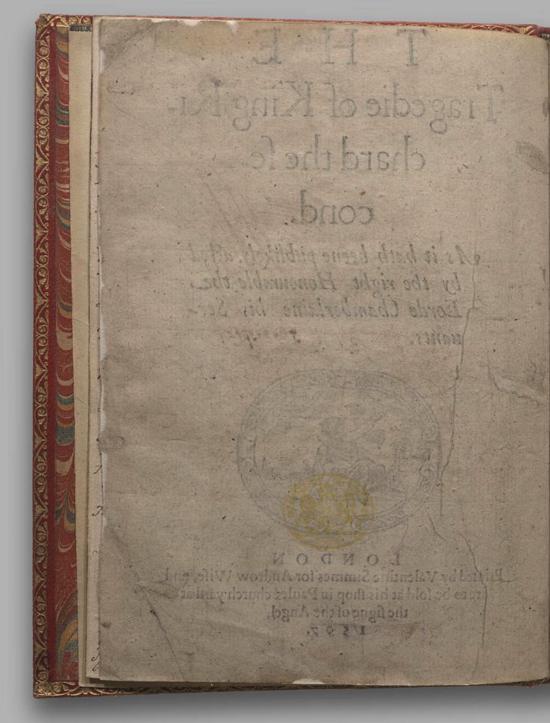 THE
Tragedie of King Ri-
chard the ſe-
cond.
As it hath beene publikely acted
by the right Honourable the
Lorde Chamberlaine his Ser-
uants.
LONDON
Printed by Valentine Simmes for Androw Wiſe, and
are to be ſold at his ſhop in Paules church yard at
the ſigne of the Angel.
1597.